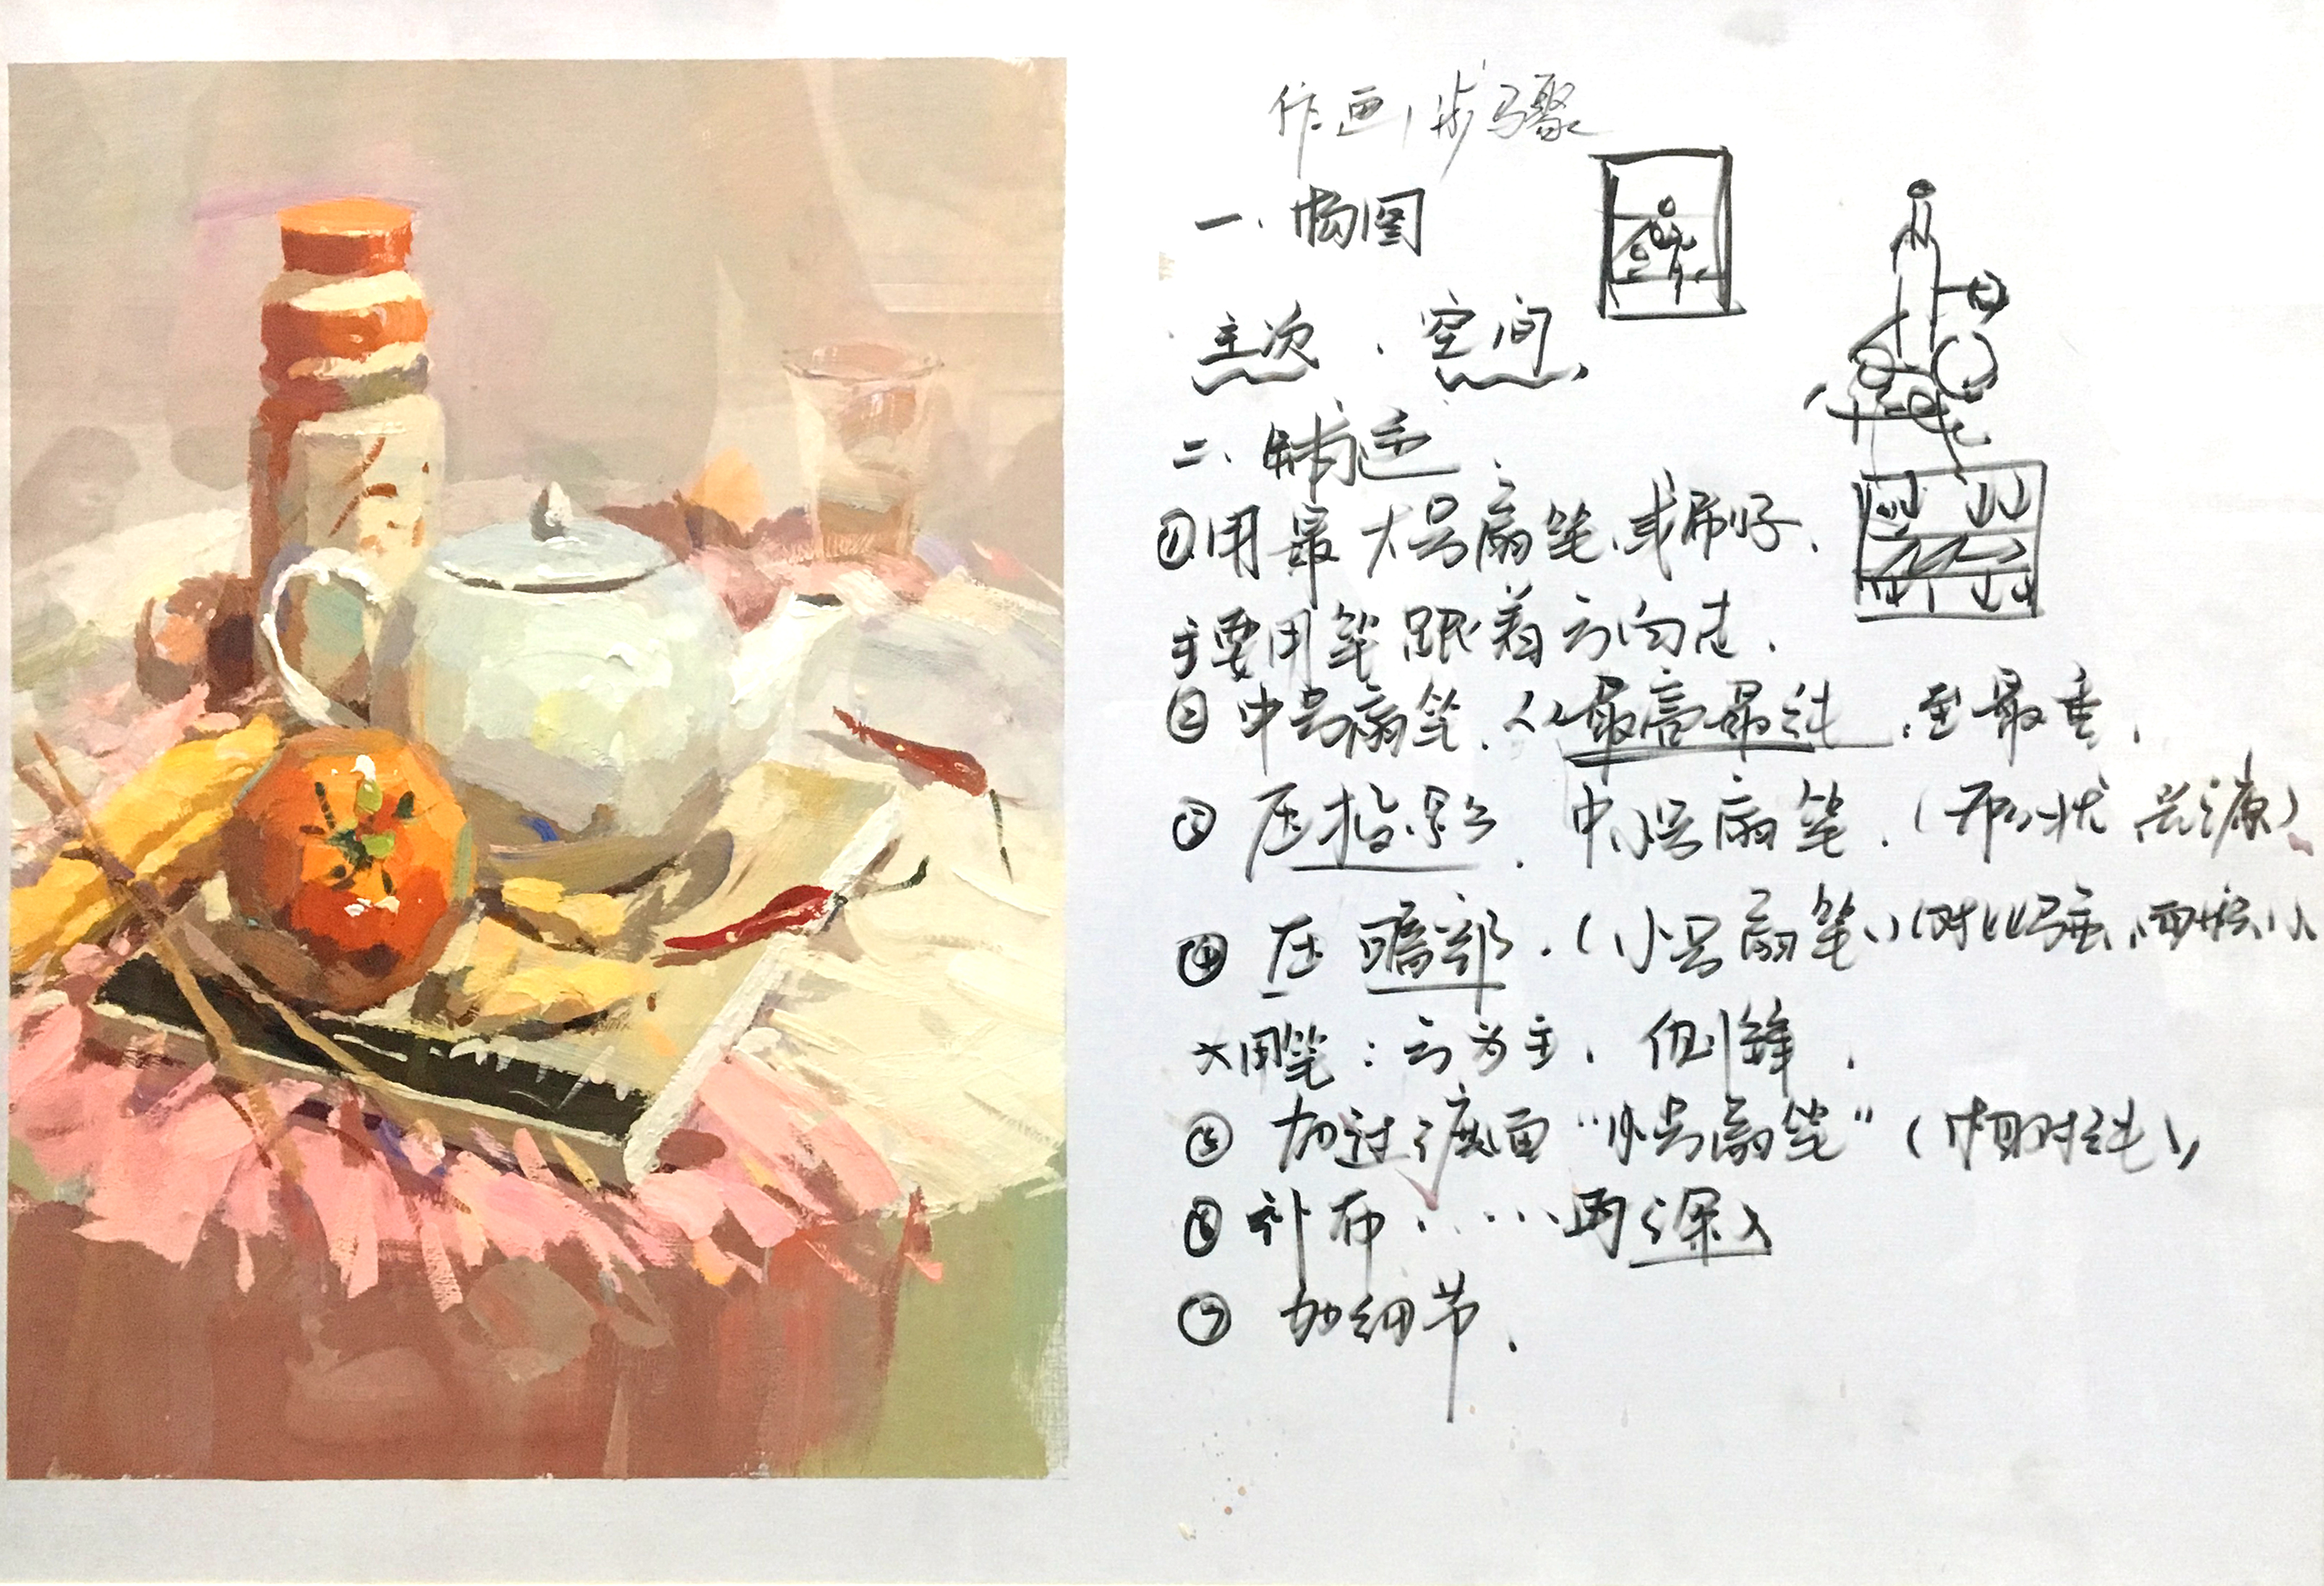 作画步骤
一、构图
主次、空间、
二、铺色、
①用最大号扇笔、或刷子、
主要用笔跟着方向走、
②中号扇笔、从最亮最纯、至最重、
③压投影、中小号扇笔、(形状光源)、
④压暗部、(小号扇笔、)(对比弱、面积小
大用笔:方为主、侧锋、
⑤加过渡面"小号扇笔"(相对纯)、
⑥补布……再深入
⑦加细节、